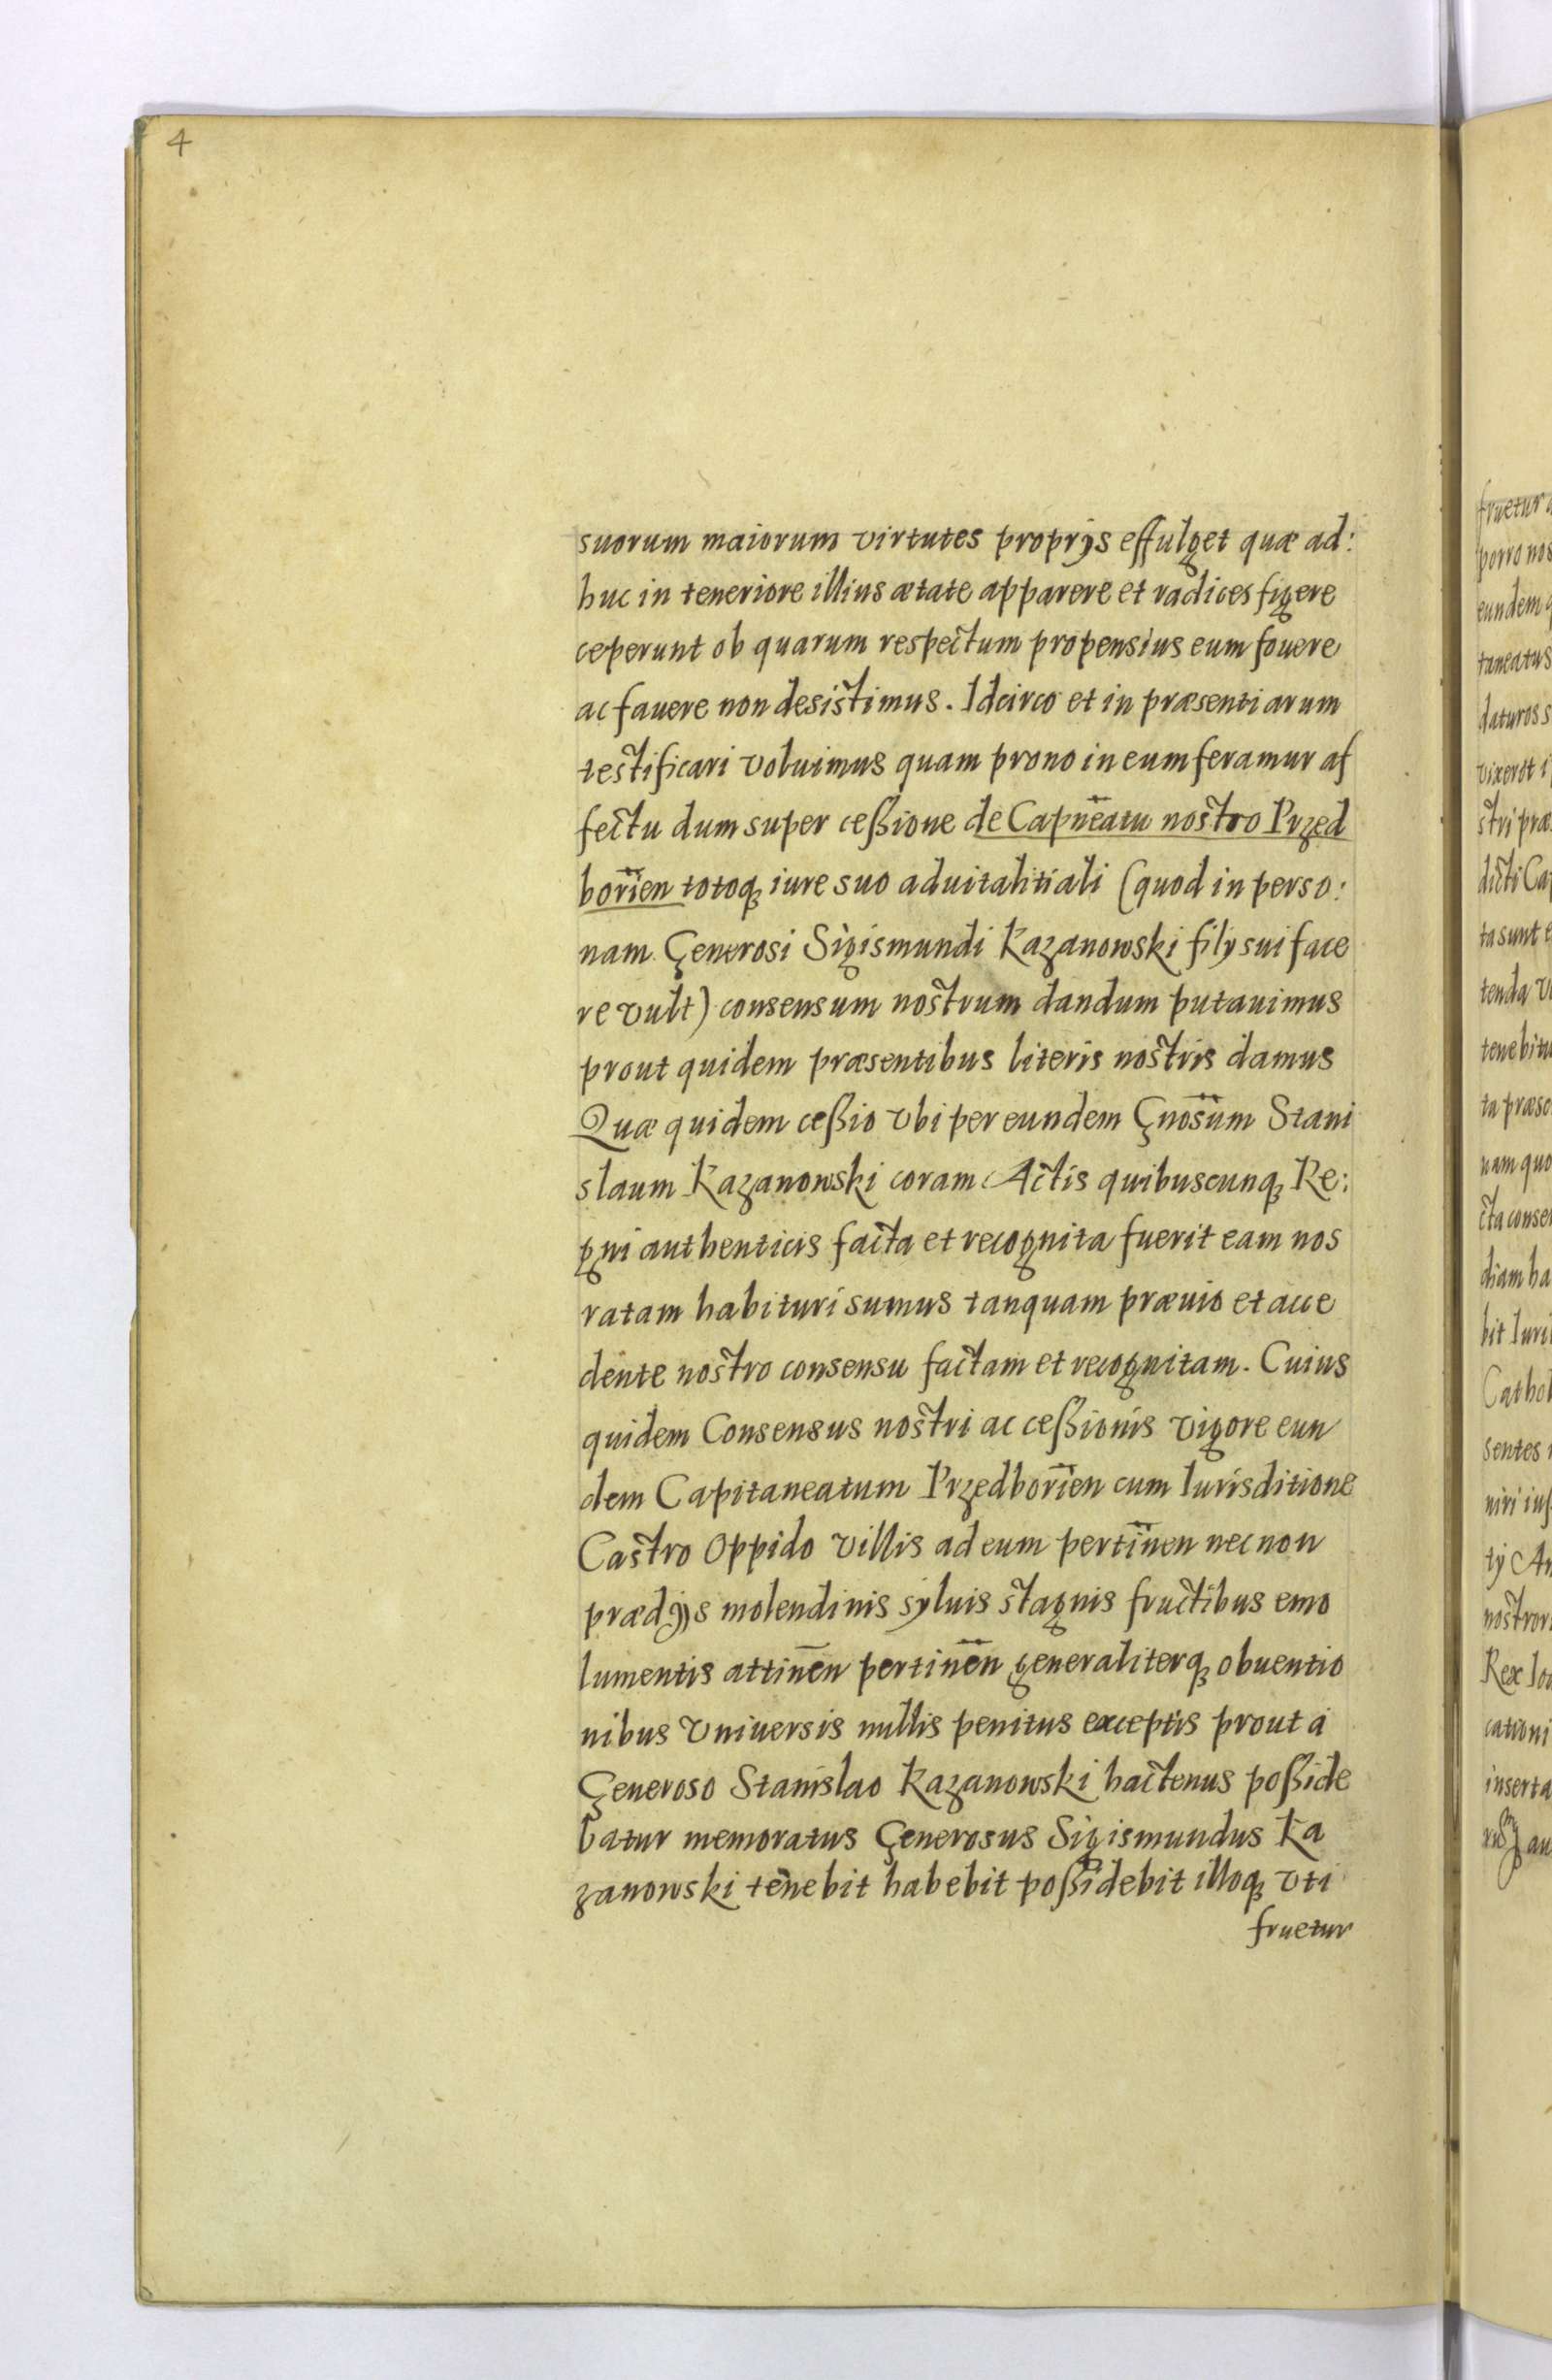 4
suorum maiorum virtutes proprijs effulget quæ ad:
huc in teneriore illius ætate apparere et radices figere
ceperunt ob quarum respectum propensius eum fouere
ac fauere non desistimus. Idcirco et in præsentiarum
testificari voluimus quam prono in eum feramur af
fectu dum super ceßione de Capneatu nostro Przed
borien totoq iure suo aduitalitiali (quod in perso:
nam Generosi Sigismundi Kazanowski filij sui face
re vult) consensum nostrum dandum putauimus
prout quidem præsentibus literis nostris damus
Quæ quidem ceßio vbi per eundem Gnosum Stani
slaum Kazanowski coram Actis quibuscunq Re:
gni authenticis facta et recognita fuerit eam nos
ratam habituri sumus tanquam præuio et acce
dente nostro consensu factam et recognitam. Cuius
quidem Consensus nostri ac ceßionis vigore eun
dem Capitaneatum Przedborien cum Iurisditione
Castro Oppido villis ad eum pertinen nec non
prædijs molendinis syluis stagnis fructibus emo
lumentis attinen pertinen generaliterq obuentio
nibus vniuersis nullis penitus exceptis prout á
Generoso Stanislao Kazanowski hactenus poßide
batur memoratus Generosus Sigismundus Ka
zanowski tenebit habebit poßidebit illoq vti
fruetur
fruetur
porro nos
eundem
taneatus
daturos s
vixerit i
stri præ
dicti Ca
ta sunt e
tenda v
tenebitu
ta præse
nam quo
cta conse
diam ha
bit Iuri
Cathol
sentes
niri ius
tÿ An
nostror
Rex lo
cationi
inserta
au